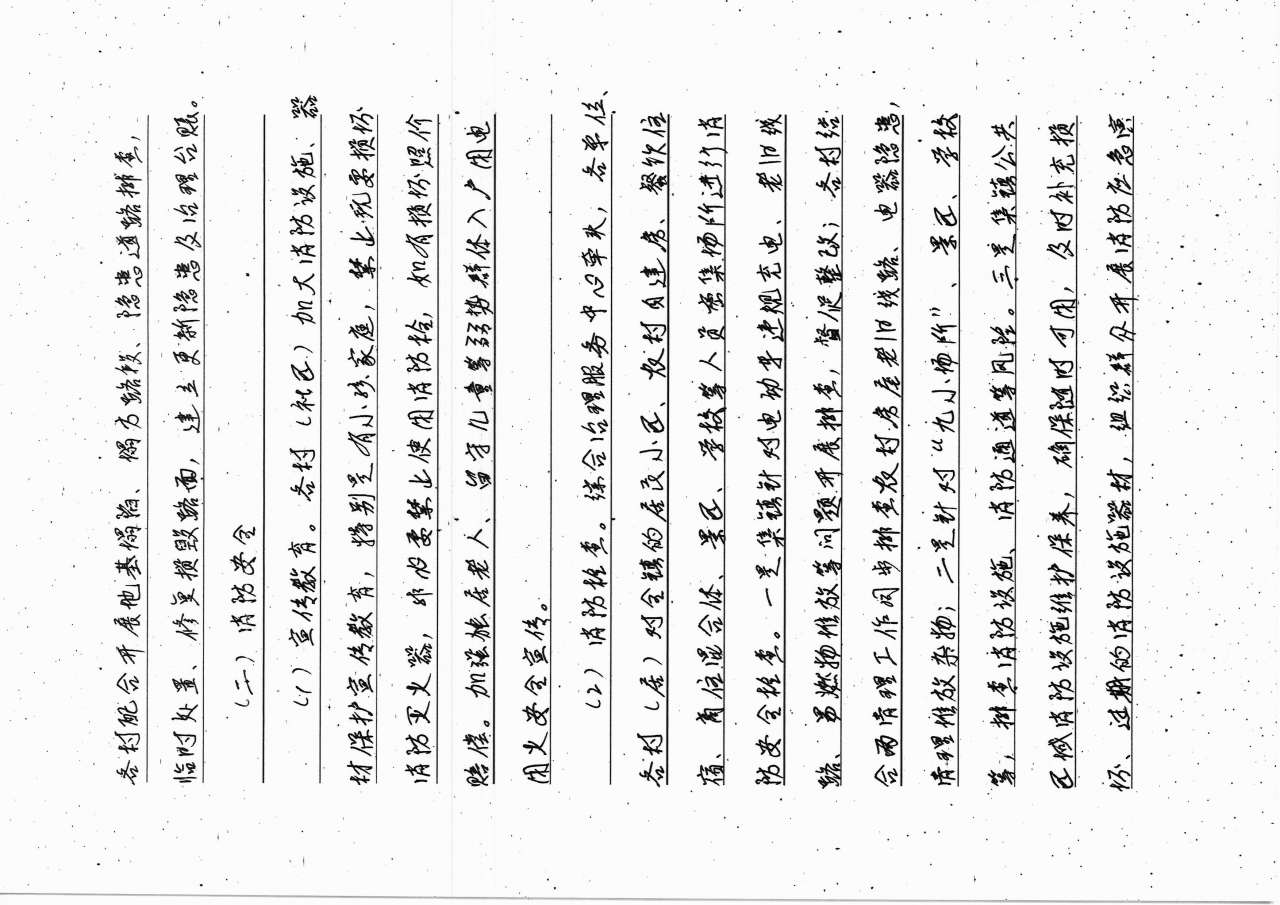 各村配合开展地基塌陷、塌方路段、隐患道路排查，
临时处置、修复损毁路面，建立更新隐患及治理台账。
（二）消防安全
（1）宣传教育。各村（社区）加大消防设施、器
材保护宣传教育，特别是有小孩家庭，禁止玩耍损坏
消防灭火器，非必要禁止使用消防栓，如有损坏照价
赔偿。加强独居老人、留守儿童等弱势群体入户用电
用火安全宣传。
（2）消防检查。综合治理服务中心牵头，各单位、
各村（居）对全镇的居改小区、农村自建房、餐饮住
宿、商住混合体、景区、学校等人员密集场所进行消
防安全检查。一是集镇针对电动车违规充电、老旧线
路、易燃物堆放等问题开展排查，督促整改；各村结
合两清理工作同步排查农村房屋老旧线路、电器隐患，
清理堆放杂物；二是针对“九小场所”、景区、学校
等，排查消防设施、消防通道等风险。三是集镇公共
区域消防设施维护保养，确保随时可用，及时补充损
坏、过期的消防设施器材，组织群众开展消防应急演